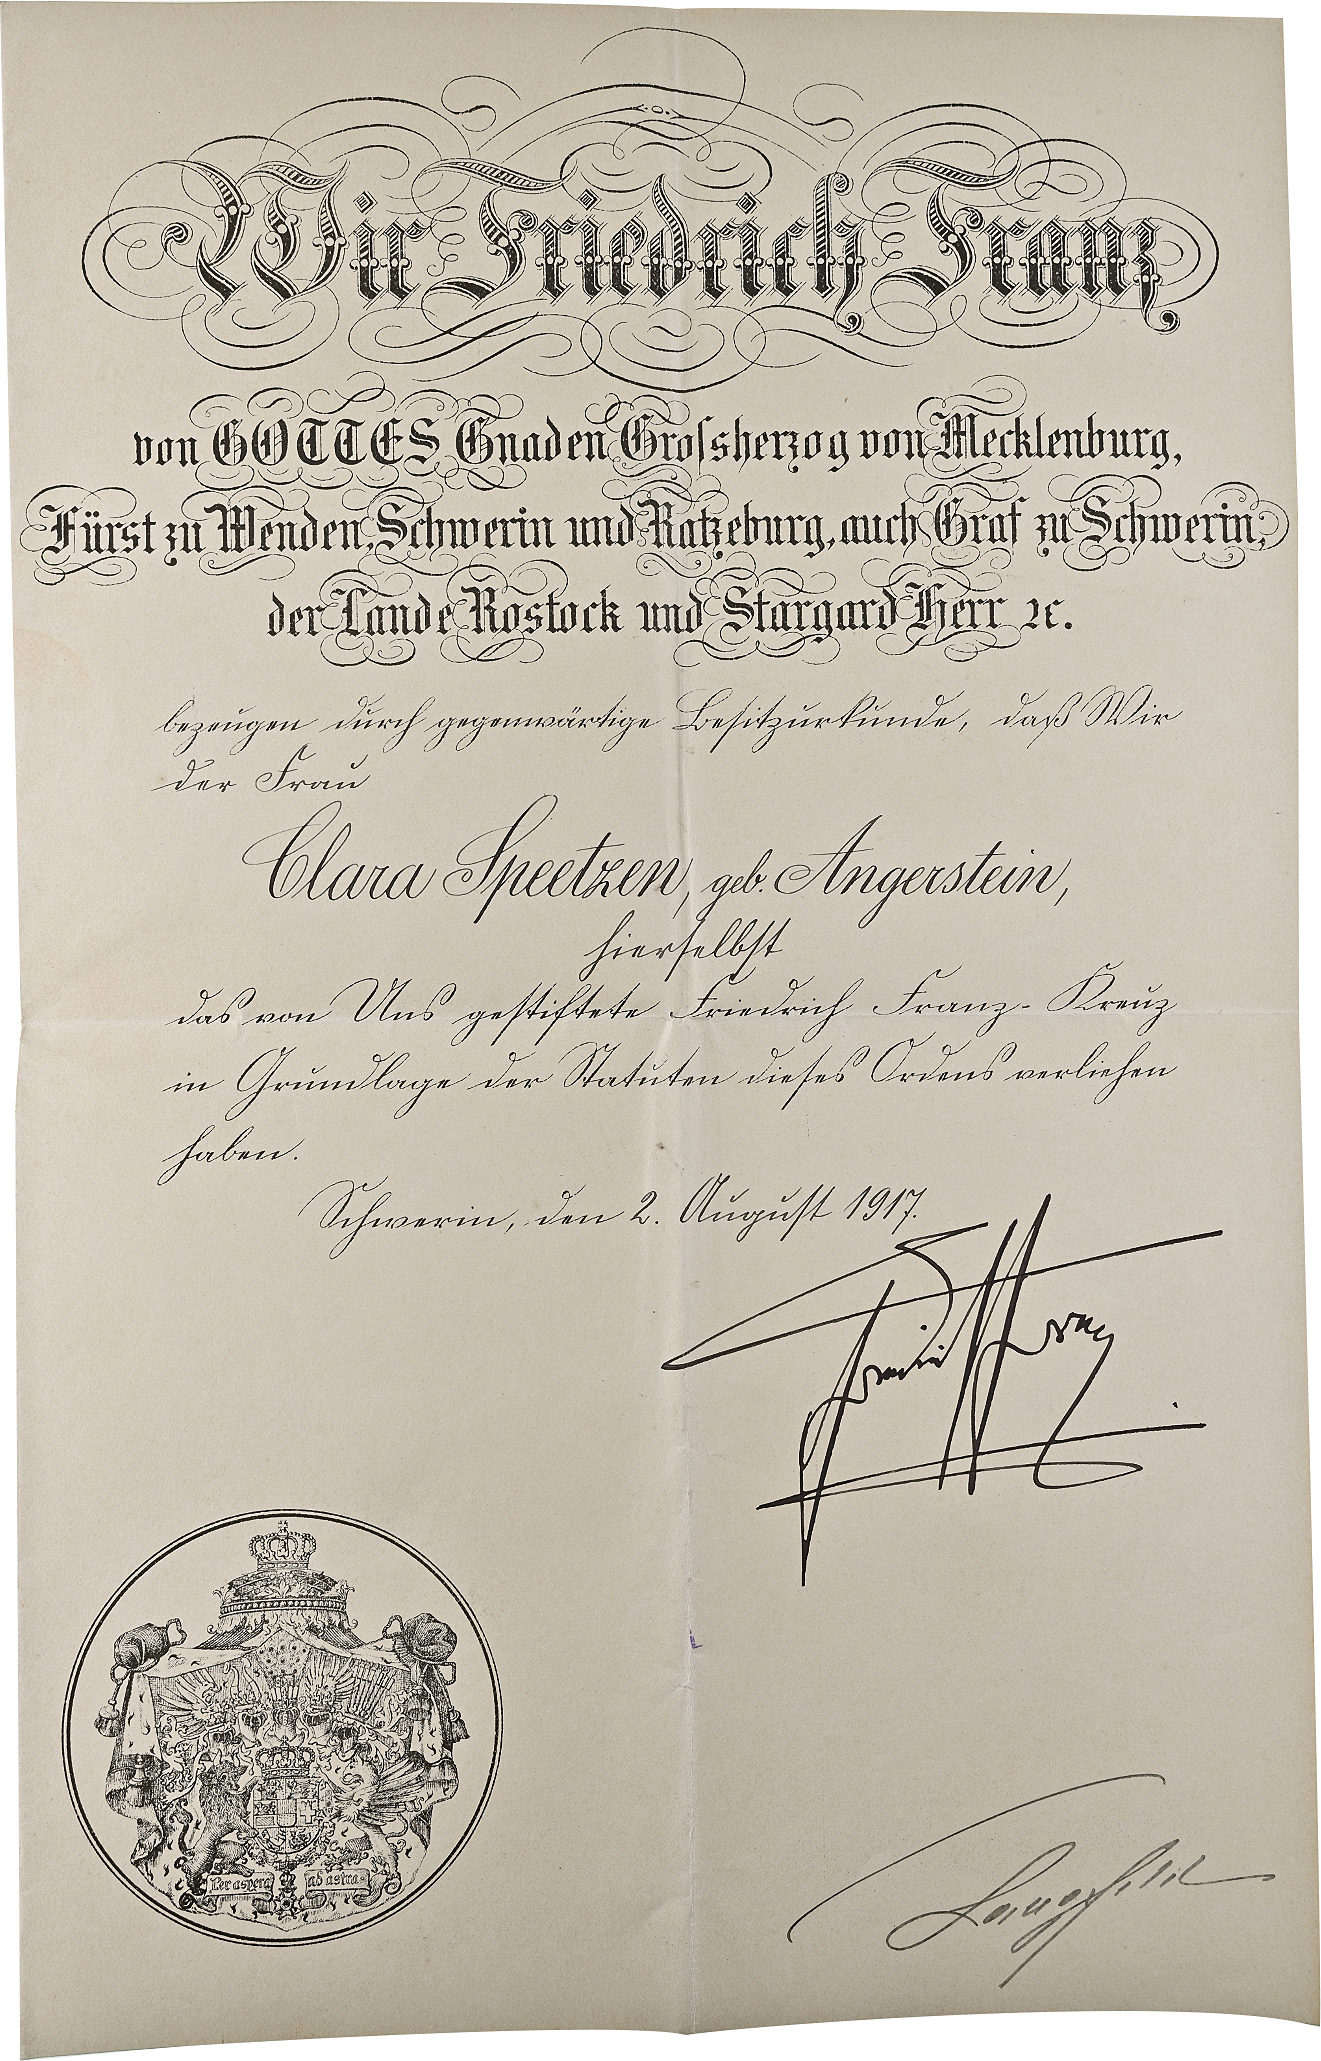 Wir Friedrich Franz
von GOTTES Gnaden Grossherzog von Mecklenburg,
Fürst zu Wenden, Schwerin und Ratzeburg, auch Graf zu Schwerin,
der Lande Rostock und Stargard Herr ꝛc.
bezeugen durch gegenwärtige Besitzurkunde, daß Wir
der Frau
Clara Speetzen, geb. Angerstein,
hierselbst
das von Uns gestiftete Friedrich Franz-Kreuz
in Grundlage der Statuten dieses Ordens verliehen
haben.
Schwerin, den 2. August 1917.
Friedrich Franz
Per aspera ad astra
Langfeld